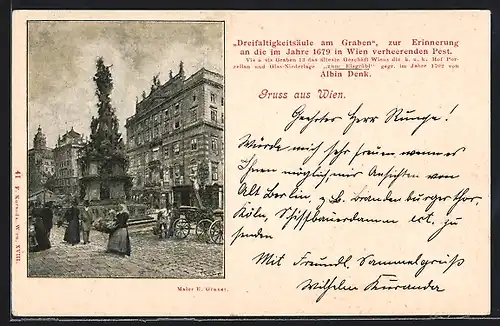 „Dreifaltigkeitsäule am Graben“, zur Erinnerung
an die im Jahre 1679 in Wien verheerenden Pest.
Vis à vis Graben 13 das älteste Geschäft Wiens die k. u. k. Hof Por-
zellan und Glas-Niederlage „zum Eisgrübl“ gegr. im Jahre 1702 von
Albin Denk.
Gruss aus Wien.
Geehrter Herr Runge!
Würde mich sehr freuen wenn es
Ihnen möglich mir Ansichten von
Alt Berlin, z.B. Brandenburger thor,
Köln, Schiffbauerdamm etc. zu
senden
Mit Freundl. Sammelgruß
Wilhelm Kuranda
Maler E. Graner.
41 F. Wien, XVIII.